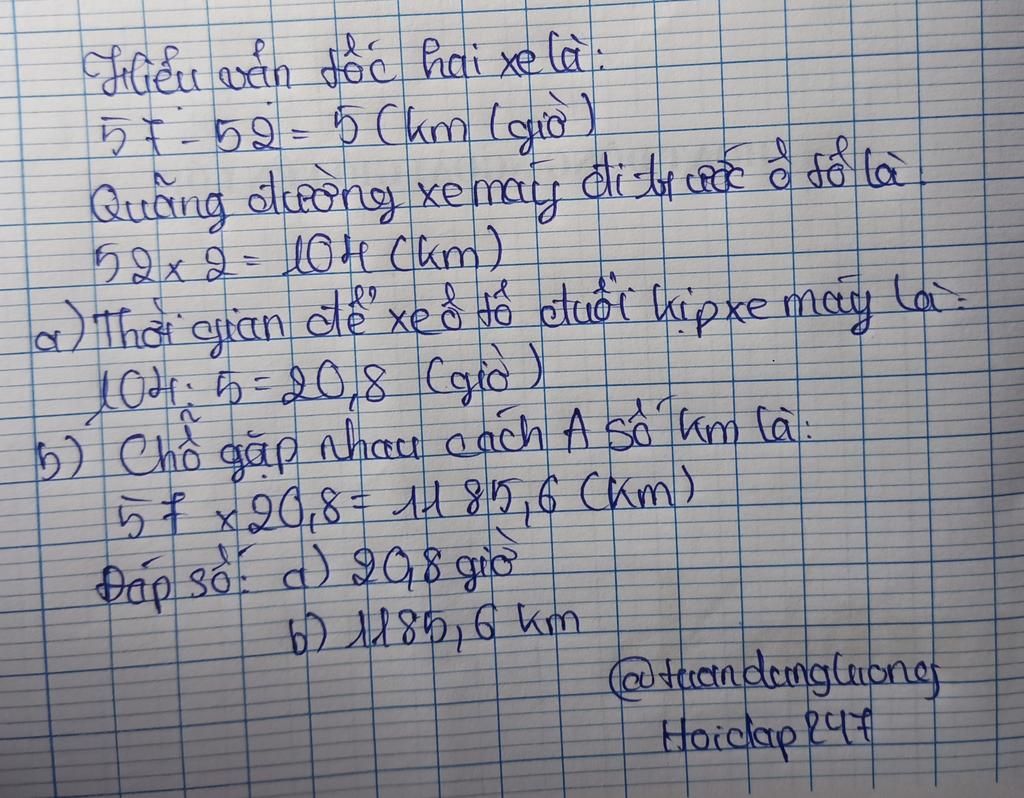 Hiệu vận tốc hai xe là:
57 - 52 = 5 (km/giờ)
Quãng đường xe máy đi trước ô tô là
52 x 2 = 104 (km)
a) Thời gian để xe ô tô đuổi kịp xe máy là:
104 : 5 = 20,8 (giờ)
b) Chỗ gặp nhau cách A số km là:
57 x 20,8 = 1185,6 (km)
Đáp số: a) 20,8 giờ
b) 1185,6 km
@tuandangluong
Hoidap247